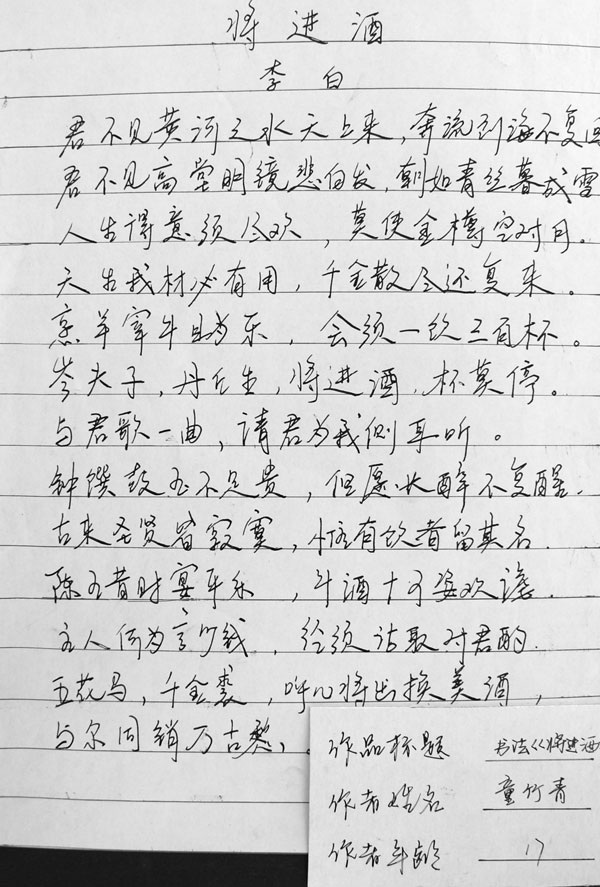 将进酒
李白
君不见黄河之水天上来，奔流到海不复回
君不见高堂明镜悲白发，朝如青丝暮成雪
人生得意须尽欢，莫使金樽空对月。
天生我材必有用，千金散尽还复来。
烹羊宰牛且为乐，会须一饮三百杯。
岑夫子，丹丘生，将进酒，杯莫停。
与君歌一曲，请君为我侧耳听。
钟馔鼓玉不足贵，但愿长醉不复醒.
古来圣贤皆寂寞，惟有饮者留其名.
陈王昔时宴平乐，斗酒十千姿欢谑.
主人何为言少钱，径须沽取对君酌.
五花马，千金裘，呼儿将出换美酒，
与尔同销万古愁、.
作品标题 书法《将进酒
作者姓名 童竹青
作者年龄 17